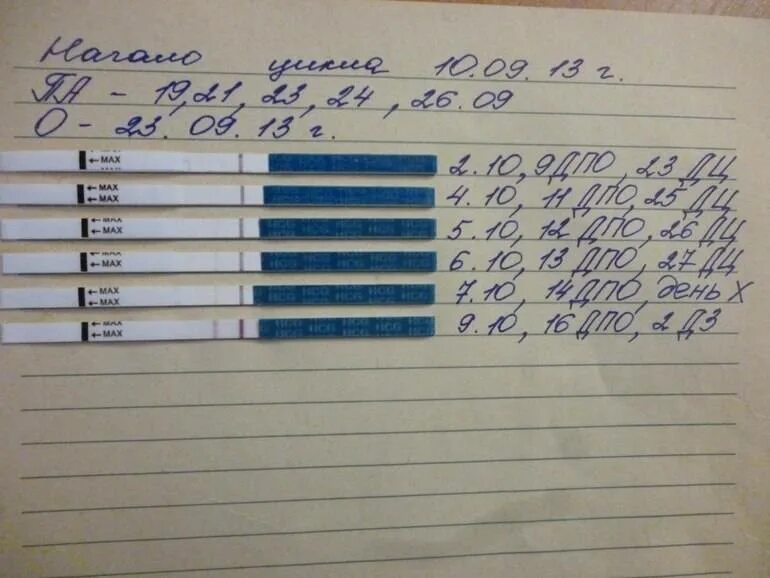 Начало цикла 10.09.13 г.
ПА - 19,21,23,24,26.09
О - 23.09.13 г.
←MAX 2.10, 9ДПО, 23 ДЦ
←MAX 4.10, 11 ДПО, 25 ДЦ
←MAX HCG HCG HCG 5.10, 12 ДПО, 26 ДЦ
←MAX HCG HCG HCG 6.10, 13 ДПО, 27 ДЦ
←MAX HCG HCG HCG 7.10, 14 ДПО, день X
←MAX HCG HCG HCG 9.10, 16 ДПО, 2 ДЗ